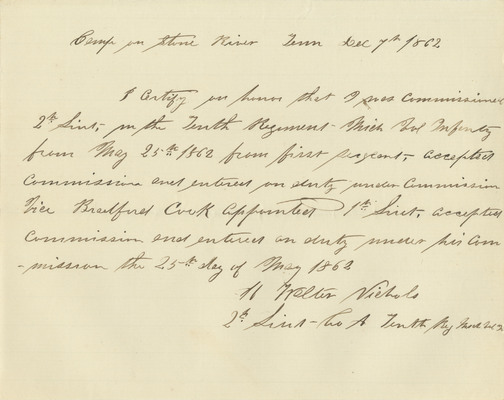 Camp on Stone River Tenn Dec 7th 1862
I Certify on honor that I was commissioned
2d Lieut, in the Tenth Regiment Mich Vol Infanty
from May 25th 1862 from first sergeant, accepted
Commission and entered on duty under Commission
Vice Bradford Cook appointed 1st Lieut. accepted
Commission and entered on duty under his Com
-mission the 25th day of May 1862
Walter Nichols
2d Lieut Co A Tenth Reg Mich Vol